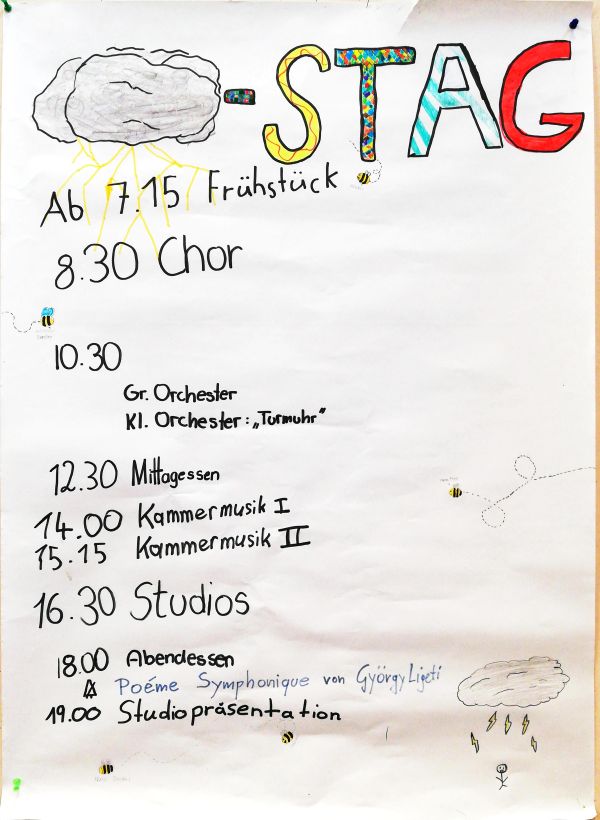 -STAG
Ab 7.15 Frühstück
8.30 Chor
10.30
Gr. Orchester
Kl. Orchester: „Turmuhr"
12.30 Mittagessen
14.00 Kammermusik I
15.15 Kammermusik II
16.30 Studios
18.00 Abendessen
Poéme Symphonique von György Ligeti
19.00 Studiopräsentation